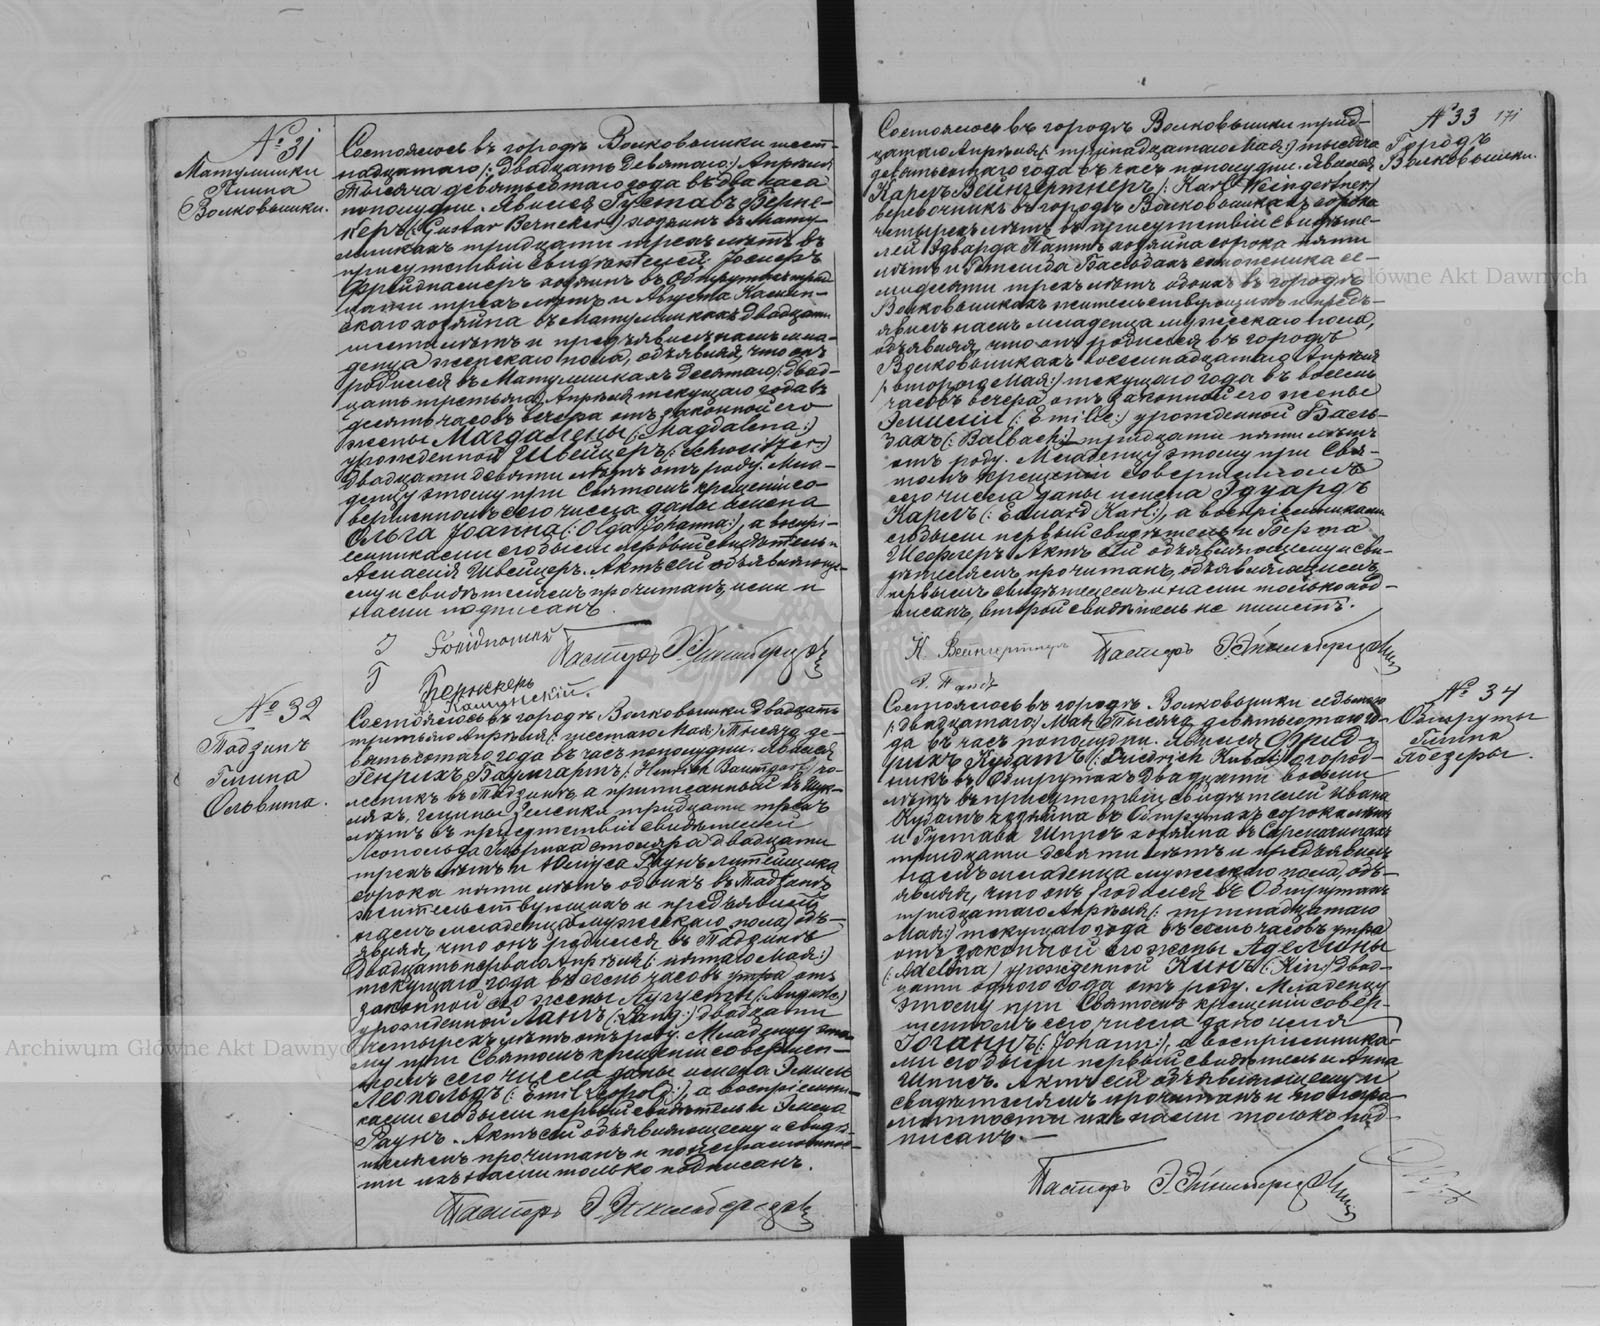 № 31
Матулишки
Гмина
Волковышки.
Состоялось въ городѣ Волковышки шест-
надцатаго /: двадцать девятаго:/ Апрѣля
тысяча девятьсотаго года въ два часа
пополудни. Явился Густавъ Берне-
керъ (: Gustav Berneker:) хозяинъ въ Мату-
лишкахъ тридцати трехъ лѣтъ въ
присутствіи свидѣтелей Госифа
хозяинъ въ
цати трехъ лѣтъ и Августа
скаго хозяина въ Матулишкахъ двадцати
шести лѣтъ и предъявилъ намъ мла-
денца женскаго пола, объявляя, что онъ
родился въ Матулишкахъ десятаго /: двад-
цать третьяго:/ Апрѣля текущаго года въ
десять часовъ вечера отъ законной его
жены Магдалены (: Magdalena:)
урожденной Швейцеръ (: Schweitzer:)
двадцати девяти лѣтъ отъ роду. Мла-
денцу этому при Святомъ крещеніи со-
вершенномъ сего числа даны имена
Ольга Іоанна (: Olga Johanna:), а воспрі-
емниками его были первый свидѣтель и
Амалія Швейцеръ. Актъ сей объявляюще-
му и свидѣтелямъ прочитанъ, ими и
нами подписанъ.
Пасторъ
Г Бернекеръ
№ 32
Тадзинъ
Гмина
Ольвита.
Состоялось въ городѣ Волковышки двадцать
третьяго Апрѣля (: шестаго Мая:) тысяча де-
вятьсотаго года въ часъ пополудни. Явился
Генрихъ Баумгартъ (: Heinrich Baumgart:) ко-
лесникъ въ Тадзинѣ, а приписанный въ
гмины Зеленка тридцати трехъ
лѣтъ въ присутствіи свидѣтелей
Леопольда столяра двадцати
трехъ лѣтъ и Юліуса Раунъ литейщика
сорока пяти лѣтъ обоихъ въ Тадзинѣ
жительствующихъ и предъявилъ
намъ младенца мужескаго пола, объ-
являя, что онъ родился въ Тадзинѣ
двадцать перваго Апрѣля (: четвертаго Мая:)
текущаго года въ семь часовъ утра отъ
законной его жены Августы (: Auguste:)
урожденной Лангъ (: Lang:) двадцати
четырехъ лѣтъ отъ роду. Младенцу это-
му при Святомъ крещеніи совершен-
номъ сего числа даны имена Эмиль
Леопольдъ (: Emil Leopold:), а воспріемни-
ками его были первый свидѣтель и Эмма
Раунъ. Актъ сей объявляющему и свидѣ-
телямъ прочитанъ и по неграмотнос-
ти ихъ нами только подписанъ.
Пасторъ
№ 33 171
Городъ
Волковышки.
Состоялось въ городѣ Волковышки трид-
цатаго Апрѣля (: тринадцатаго Мая:) тысяча
девятьсотаго года въ часъ пополудни. Явился
Карлъ Вейнгертнеръ (: Karl Weingertner:)
веревочникъ въ городѣ Волковышкахъ сорока
четырехъ лѣтъ въ присутствіи свидѣте-
лей Эдварда хозяина сорока пяти
лѣтъ и Бальбахъ се-
мидесяти трехъ лѣтъ обоихъ въ городѣ
Волковышкахъ жительствующихъ и предъ-
явилъ намъ младенца мужескаго пола,
объявляя, что онъ родился въ городѣ
Волковышкахъ восемнадцатаго Апрѣля
(: втораго Мая:) текущаго года въ восемь
часовъ вечера отъ законной его жены
Эмиліи (: Emilie:) урожденной Баль-
бахъ (: Balbach:) тридцати пяти лѣтъ
отъ роду. Младенцу этому при Свя-
томъ крещеніи совершенномъ
сего числа даны имена Эдуардъ
Карлъ (: Eduard Karl:), а воспріемниками
его были первый свидѣтель и Берта
Шефлеръ. Актъ сей объявляющему и сви-
дѣтелямъ прочитанъ, объявляющимъ,
первымъ свидѣтелемъ и нами только под-
писанъ, второй свидѣтель не пишетъ.
К. Вейнгертнеръ
Пасторъ
№ 34
Обшруты
Гмина
Поезеры.
Состоялось въ городѣ Волковышки седьмого
(: двадцатаго:) Мая тысяча девятьсотаго го-
да въ часъ пополудни. Явился Фрид-
рихъ Кубатъ (: Friedrich Kubat:) огород-
никъ въ Обшрутахъ двадцати восьми
лѣтъ въ присутствіи свидѣтелей Ивана
Кубатъ хозяина въ Обшрутахъ сорока лѣтъ
и Густава Шписъ хозяина въ
тридцати девяти лѣтъ и предъявилъ
намъ младенца мужескаго пола, объ-
являя, что онъ родился въ Обшрутахъ
тридцатаго Апрѣля (: тринадцатаго
Мая:) текущаго года въ семь часовъ утра
отъ законной его жены Аделины
(: Adelina:) урожденной Кинъ (: Kin:) двад-
цати одного года отъ роду. Младенцу
этому при Святомъ крещеніи совер-
шенномъ сего числа дано имя
Іоганнъ (: Johann:), а воспріемника-
ми его были первый свидѣтель и Анна
Шписъ. Актъ сей объявляющему и
свидѣтелямъ прочитанъ и по негра-
мотности ихъ нами только под-
писанъ.
Пасторъ
Archiwum Główne Akt Dawnych
Archiwum Główne Akt Dawnych